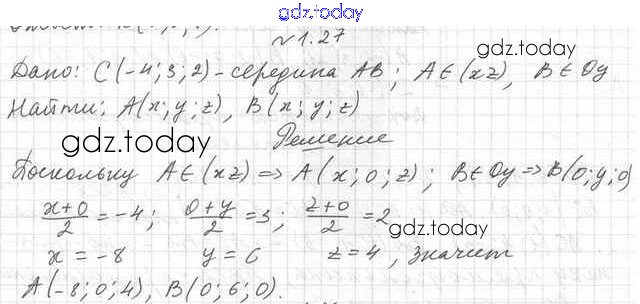 gdz.today
№1.27
gdz.today
Дано: C(-4; 3; 2) - середина AB; A∈(xz), B∈Oy
Найти: A(x; y; z), B(x; y; z)
gdz.today
Решение
Поскольку A∈(xz) => A(x; 0; z); B∈Oy => B(0; y; 0)
(x+0)/2 = -4; (0+y)/2 = 3; (z+0)/2 = 2
gdz.today
x = -8 y = 6 z = 4, значит
A(-8; 0; 4), B(0; 6; 0).